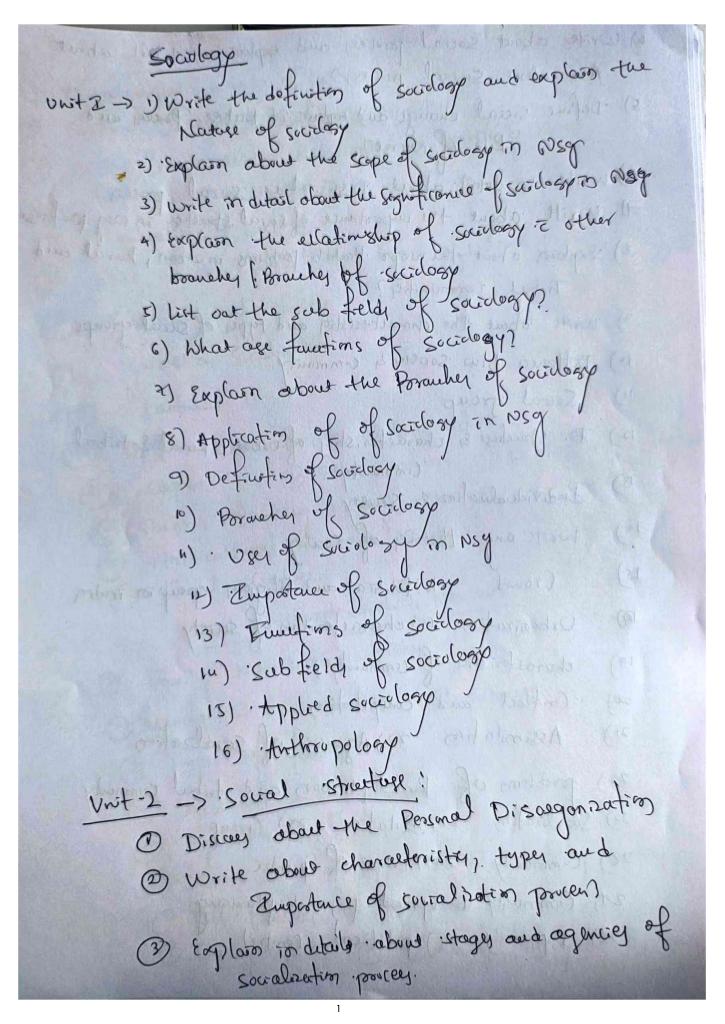 Sociology
Unit I → 1) Write the definition of sociology and explain the
Nature of sociology
2) Explain about the scope of sociology in Nsg
3) write in detail about the significance of sociology in Nsg
4) Explain the relationship of sociology c̄ other
branches / Branches of sociology
5) List out the sub fields of sociology?
6) What are functions of sociology?
7) Explain about the Branches of sociology
8) Application of of sociology in Nsg
9) Definition of sociology
10) Branches of sociology
11) Uses of sociology in Nsg
12) Importance of sociology
13) Functions of sociology
14) Sub fields of sociology
15) Applied sociology
16) Anthropology
Unit-2 → Social Structure:
① Discuss about the Personal Disorganization
② Write about characteristics, types and
Importance of socialization process
③ Explain in details about stages and agencies of
socialization process.
1